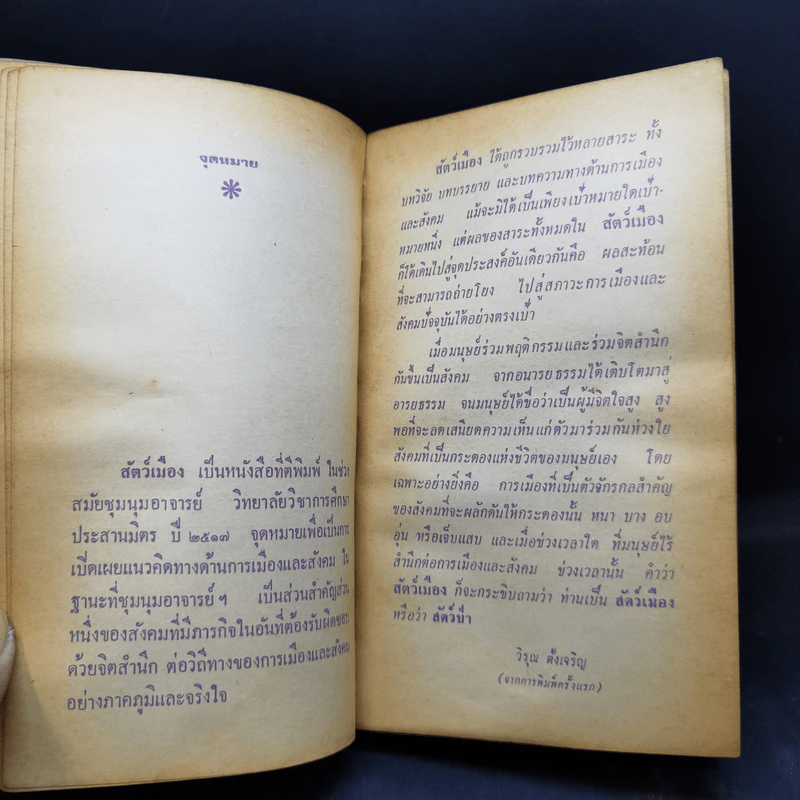 จุดหมาย
สัตว์เมือง เป็นหนังสือที่ตีพิมพ์ ในช่วง
สมัยชุมนุมอาจารย์ วิทยาลัยวิชาการศึกษา
ประสานมิตร ปี ๒๕๑๗ จุดหมายเพื่อเป็นการ
เปิดเผยแนวคิดทางด้านการเมืองและสังคม ใน
ฐานะที่ชุมนุมอาจารย์ ฯ เป็นส่วนสำคัญส่วน
หนึ่งของสังคมที่มีภารกิจในอันที่ต้องรับผิดชอบ
ด้วยจิตสำนึก ต่อวิถีทางของการเมืองและสังคม
อย่างภาคภูมิและจริงใจ
สัตว์เมือง ได้ถูกรวบรวมไว้หลายสาระ ทั้ง
บทวิจัย บทบรรยาย และบทความทางด้านการเมือง
และสังคม แม้จะมิได้เป็นเพียงเป้าหมายใดเป้า-
หมายหนึ่ง แต่ผลของสาระทั้งหมดใน สัตว์เมือง
ก็ได้เดินไปสู่จุดประสงค์อันเดียวกันคือ ผลสะท้อน
ที่จะสามารถถ่ายโยง ไปสู่สภาวะการเมืองและ
สังคมปัจจุบันได้อย่างตรงเป้า
เมื่อมนุษย์ร่วมพฤติกรรมและร่วมจิตสำนึก
กันขึ้นเป็นสังคม จากอนารยธรรมได้เติบโตมาสู่
อารยธรรม จนมนุษย์ได้ชื่อว่าเป็นผู้มีจิตใจสูง สูง
พอที่จะลดเสนียดความเห็นแก่ตัวมาร่วมกันห่วงใย
สังคมที่เป็นกระดองแห่งชีวิตของมนุษย์เอง โดย
เฉพาะอย่างยิ่งคือ การเมืองที่เป็นตัวจักรกลสำคัญ
ของสังคมที่จะผลักดันให้กระดองนั้น หนา บาง อบ
อุ่น หรือเจ็บแสบ และเมื่อช่วงเวลาใด ที่มนุษย์ไร้
สำนึกต่อการเมืองและสังคม ช่วงเวลานั้น คำว่า
สัตว์เมือง ก็จะกระซิบถามว่า ท่านเป็น สัตว์เมือง
หรือว่า สัตว์ป่า
วิรุณ ตั้งเจริญ
(จากการพิมพ์ครั้งแรก)